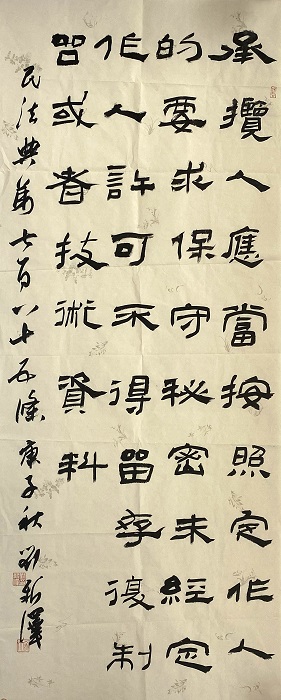 承攬人應當按照定作人
的要求保守秘密未經定
作人許可不得留存復制
品或者技術資料
民法典第七百八十五條 庚子秋 劉新